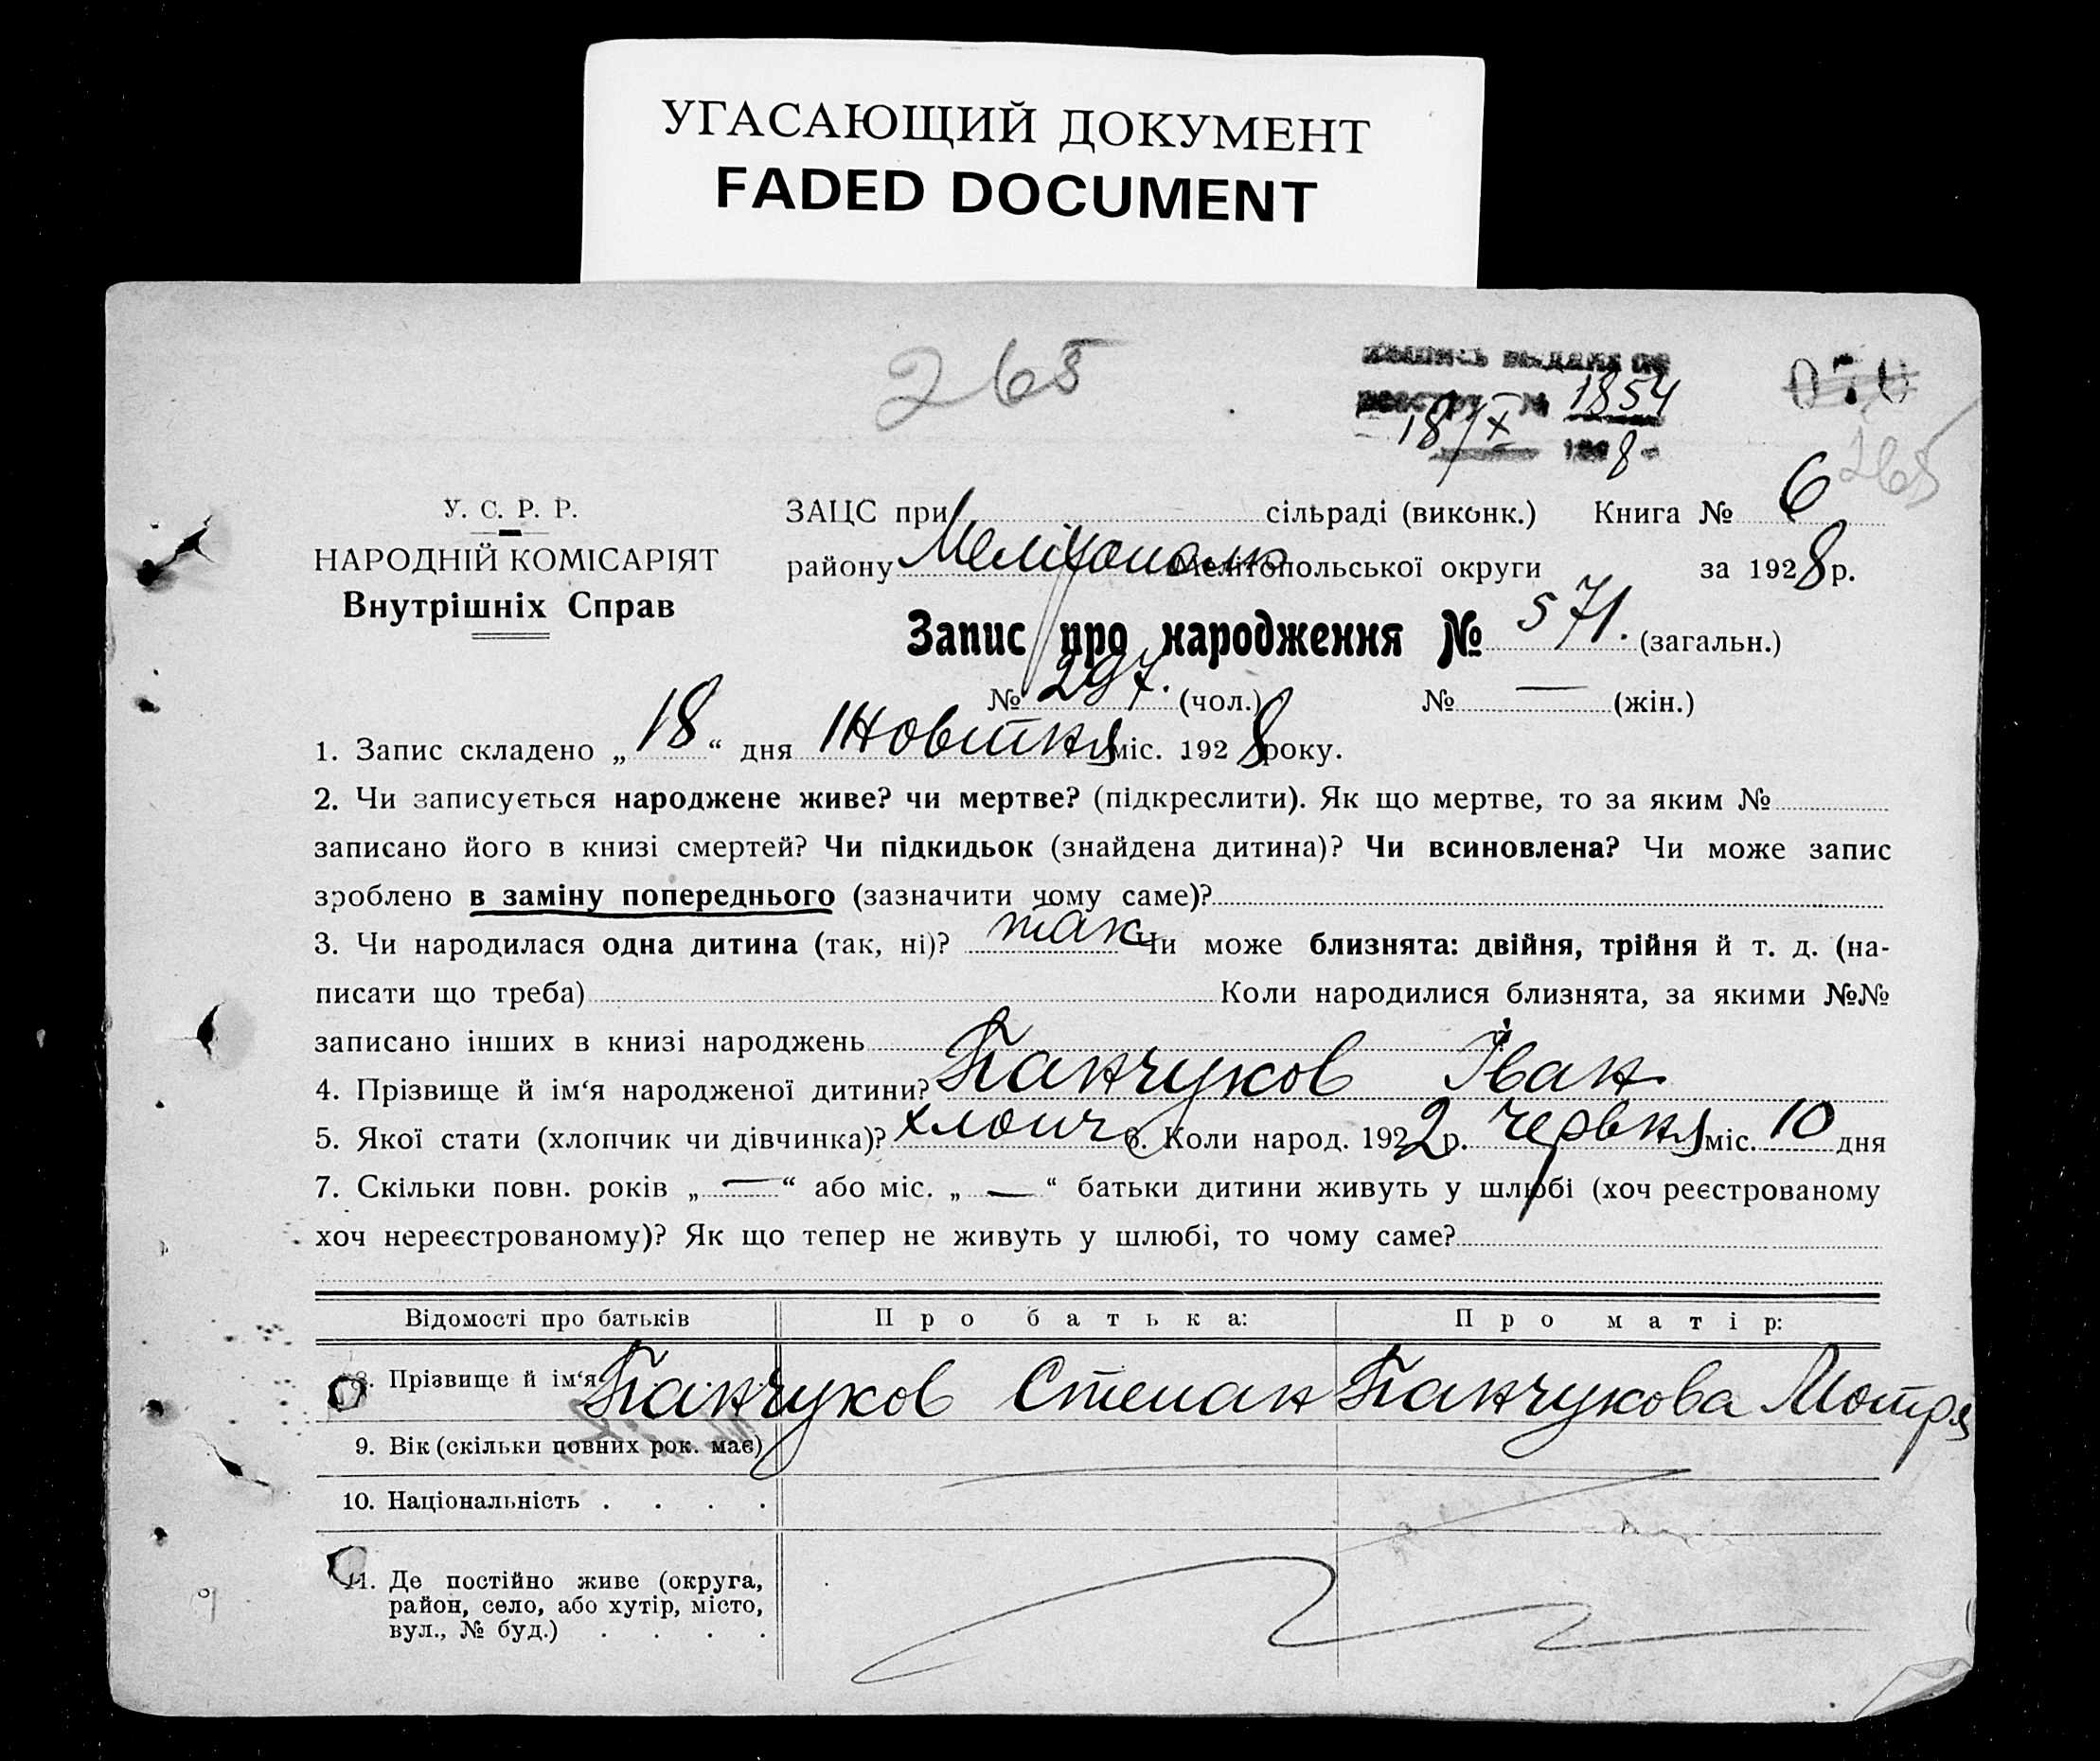 УГАСАЮЩИЙ ДОКУМЕНТ
FADED DOCUMENT
265
1854
18/X 8
070
265
У. С. Р. Р.
НАРОДНІЙ КОМІСАРІЯТ
Внутрішніх Справ
ЗАЦС при сільраді (виконк.) Книга № 6
району Мелітополю Мелітопольської округи за 1928 р.
Запис про народження № 571. (загальн.)
№ 297. (чол.) № — (жін.)
1. Запис складено „18“ дня Жовтня міс. 1928 року.
2. Чи записується народжене живе? чи мертве? (підкреслити). Як що мертве, то за яким №
записано його в книзі смертей? Чи підкидьок (знайдена дитина)? Чи всиновлена? Чи може запис
зроблено в заміну попереднього (зазначити чому саме)?
3. Чи народилася одна дитина (так, ні)? так Чи може близнята: двійня, трійня й т. д. (на-
писати що треба) Коли народилися близнята, за якими №№
записано інших в книзі народжень
4. Прізвище й ім‘я народженої дитини? Панчуков Іван
5. Якої стати (хлопчик чи дівчинка)? хлопч 6. Коли народ. 1922 р. червня міс. 10 дня
7. Скільки повн. років „—“ або міс. „—“ батьки дитини живуть у шлюбі (хоч реєстрованому
хоч нереєстрованому)? Як що тепер не живуть у шлюбі, то чому саме?
Відомості про батьків Про батька: Про матір:
8. Прізвище й ім‘я Панчуков Степан Панчукова Мотря
9. Вік (скільки повних рок. має)
10. Національність . . . .
11. Де постійно живе (округа,
район, село, або хутір, місто,
вул., № буд.) . . . .